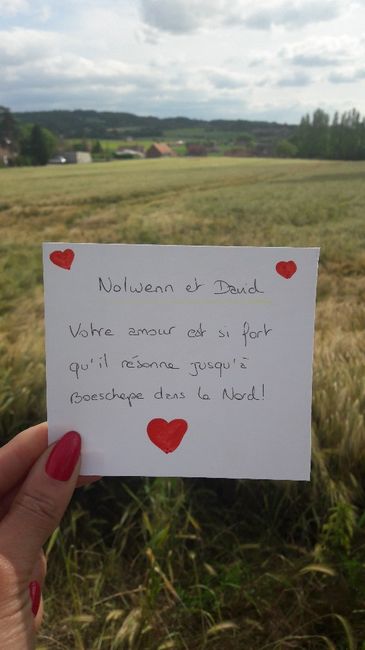 Nolwenn et David
Votre amour est si fort
qu'il résonne jusqu'à
Boeschepe dans le Nord!